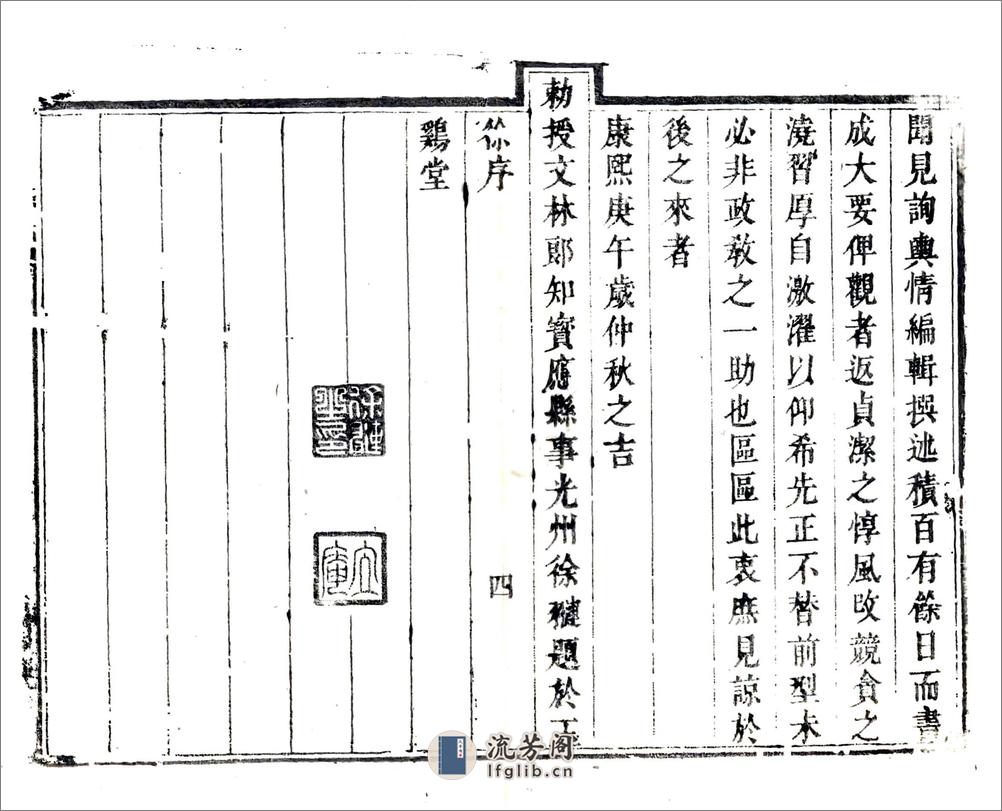 聞見詢輿情編輯撰述積百有餘日而書
成大要俾觀者返貞潔之惇風改競貪之
澆習厚自激濯以仰希先正不替前型未
必非政教之一助也區區此衷庶見諒於
後之來者
康熙庚午歲仲秋之吉
勅授文林郎知寶應縣事光州徐𤩽題於工
徐序
四
鶏堂
流芳阁
lfglib.cn